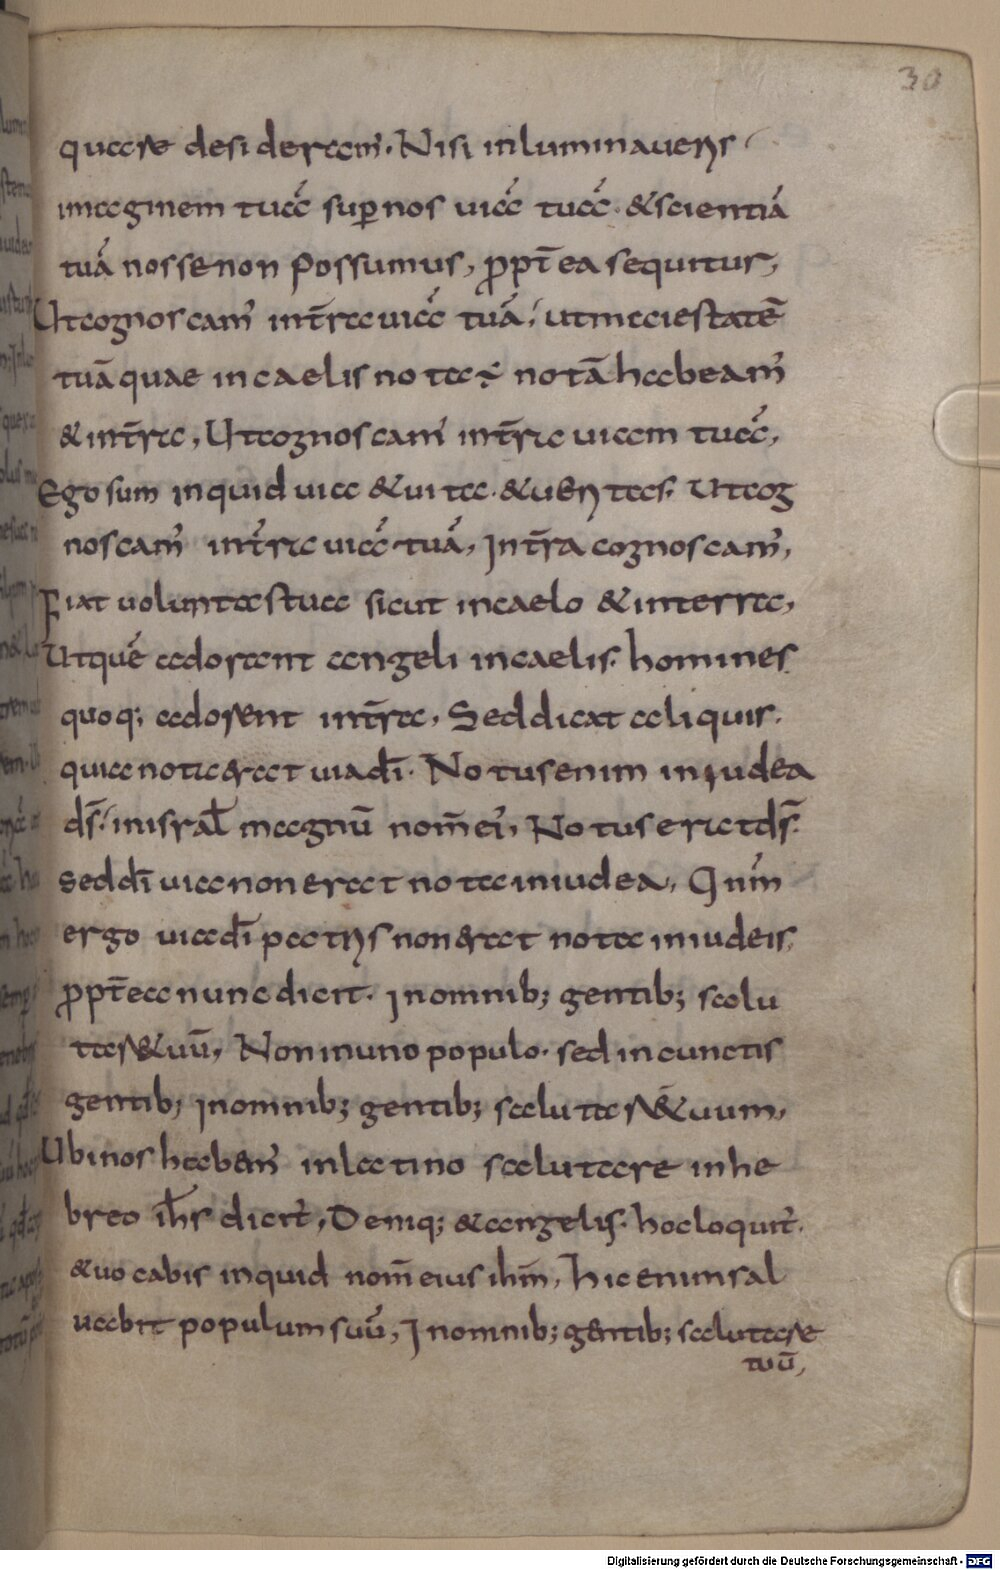 30
quare desideram̅. Nisi inluminaueris
imaginem tuā super nos uiā tuā. &scientiā
tuā nosse non possumus, ꝓpt̅ ea sequitur,
Ut cognoscam' in t̅rra uiā tuā, ut maiestatē
tuā quae in caelis nota ÷ notā habeam'
& in t̅rra, Ut cognoscam' in t̅rra uiam tuā,
Ego sum inquid uia & uita. & ueritas. Ut cog
noscam' in t̅rra uiā tuā, In t̅ra cognoscam',
Fiat uoluntas tua sicut in caelo & in terra,
Ut quē adorant angeli in caelis. homines
quoq; adorent in t̅rra, Sed dicat aliquis.
quia nota erat uia dī. Notus enim in iudea
ds̅. in israł magnū nom̅ ei', Notus erat ds̅.
sed dī uia non erat nota in iudea, Qnm̅
ergo uia dī patris non erat nota in iudeis,
ꝓpt̅ea nunc dicit. In omnib; gentib; salu
tare tuū, Non in uno populo. sed in cunctis
gentib; In omnib; gentib; salutare tuum,
Ubi nos habem' in latino salutare in he
breo ih̅s dicit', Deniq; & angelis. hoc loquit'.
& uocabis inquid nom̅ eius ihm̅, hic enim sal
uabit populum suū, In omnib; gentib; salutare
tuū,
Digitalisierung gefördert durch die Deutsche Forschungsgemeinschaft - DFG